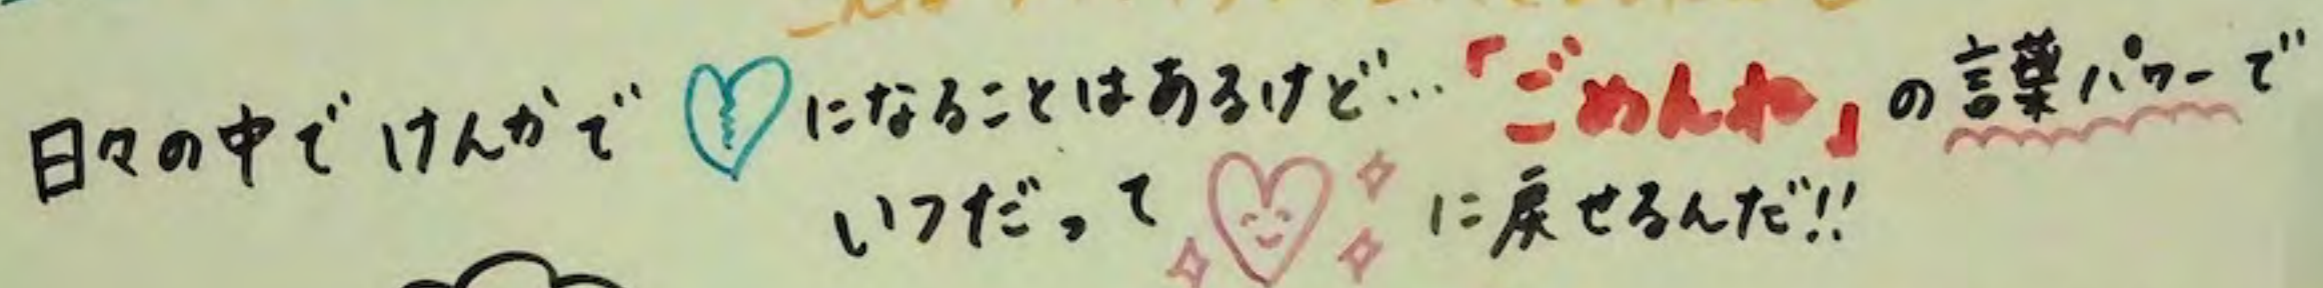 日々の中でけんかで になることはあるけど…「ごめんね」の言葉パワーで
いつだって に戻せるんだ!!